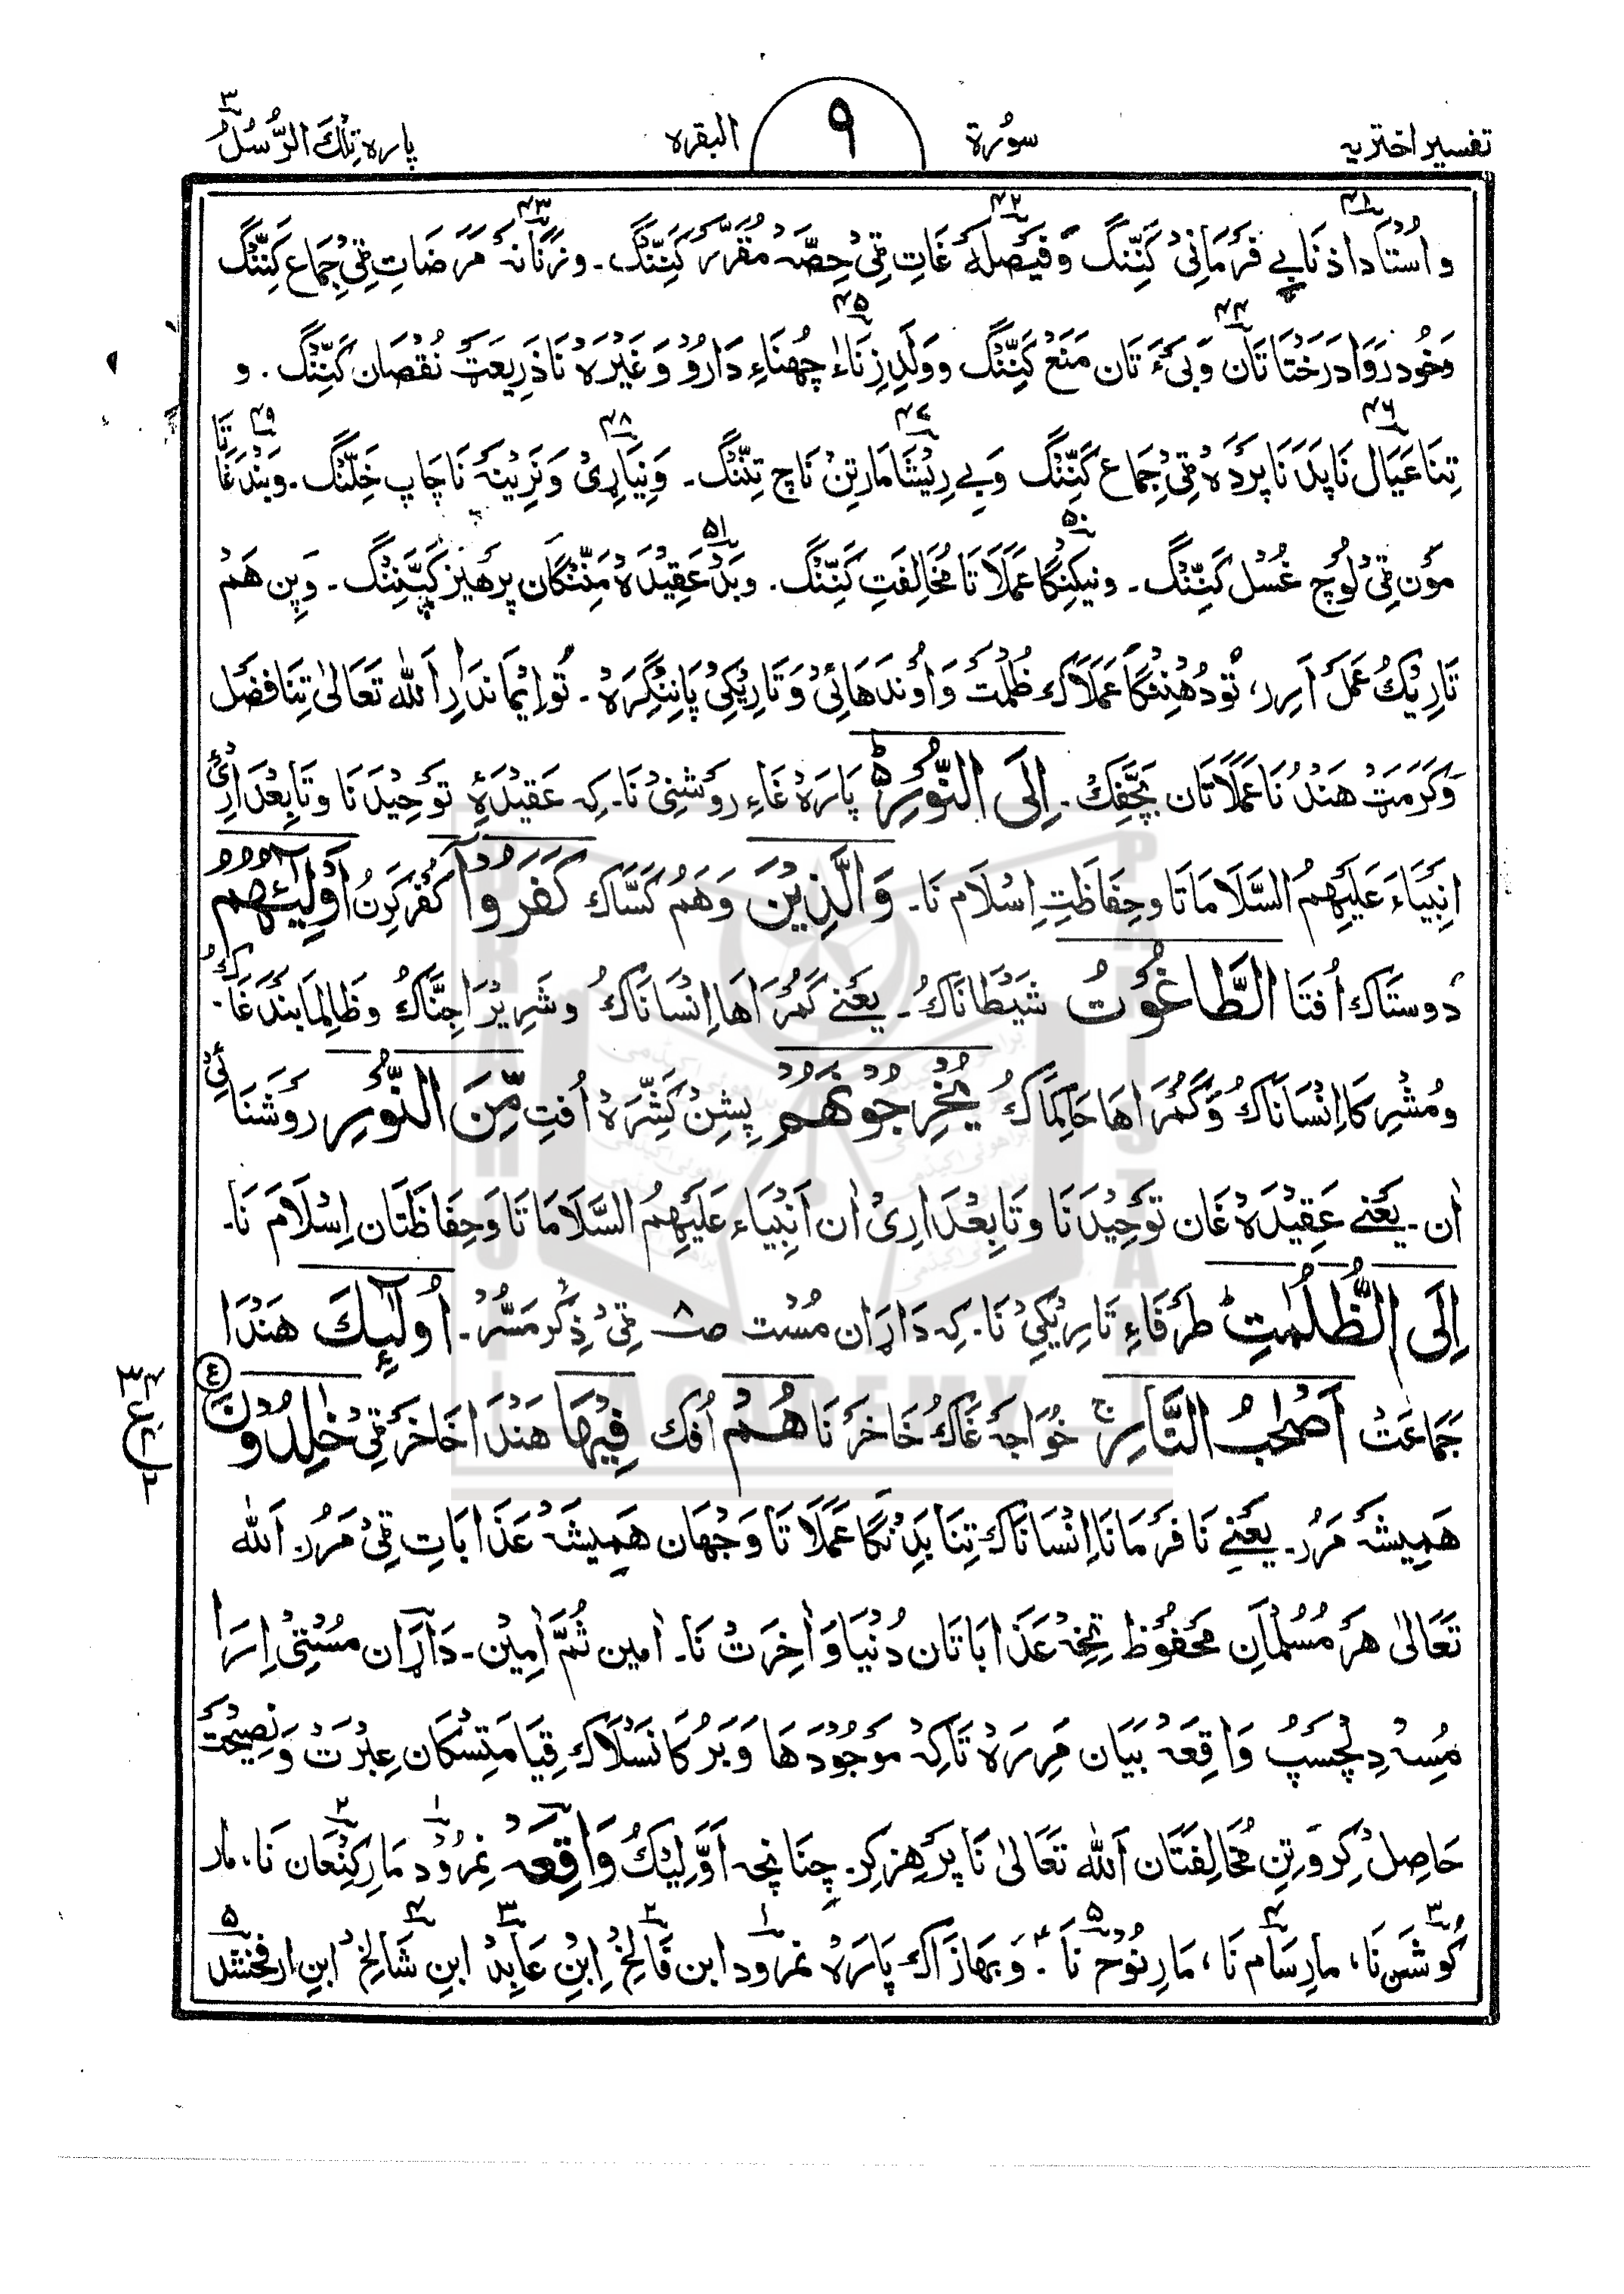 تفسیر اختریہ سُورۃ ۹ البقرہ پارہ تِلْکَ الرُّسُلُ ۳
وَاُسْتَادَاذنَا بے فَرْمَانِیْ کَنِّنگ وَفَیْصَلَہ غَاتِ ٹِی حِصَّہ مُقَرَّر کَنِّنگ۔ وزَنَانَہ مَرَضَاتِ ٹِی جِمَاع کَنِّنگ
وَخُودرَوَا دَرَخْتَا تَان وَبَیْءَ تَان مَنَعْ کَنِّنگ وَوَلَدِ زِنَاءِ چُھنَاءِ دَارُوْ وَغَیْرَہ نَا ذَرِیعَتْ نُقْصَان کَنِّنگ۔ و
تِنَا عَیَال نَا پَدَ نَا پَرْدَہ ٹِی جِمَاع کَنِّنگ وَبے رِیْشَا مَارتِنْ نَاچ تِنِّنگ۔ وَنِیَارِیْ وَنَرِیْنَہ نَا چَاپ خَلِّنگ۔ وَبَنْدَغَا تَا
مَون ٹِی لُوچ غُسْل کَنِّنگ۔ ونیکنگا عَمَلَاتَا مُخَالِفَتِ کَنِّنگ۔ وبَدْ عَقِیْدَہ مَنِّنگان پرھیز کپَّنِنگ۔ وَپِن ھَمْ
تَارِیْکْ عَمَلَ اَرِر، تُو دُھُنْکا عَمَلَاک ظُلْمَتْ وَاُونْدَھَائِیْ وَتَارِیْکِیْ پَانِنگِرَہْ۔ تُو اِیْمَانْدَارِ اَللہ تَعَالیٰ تِنَا فَضَل
وَکَرَمَتْ ھَنْدُنَا عَمَلَاتَان بَچَّفِکْ۔ اِلَی النُّوْرِ پَارَہ غَاءِ رَوْشَنِیْ نَا۔ کِہ عَقِیْدَہِ تَوحِیْدَ نَا وتَابِعْدَارِیْءِ
انبِیَاءَ عَلَیْھِمُ السَّلَامَاتَا وحِفَاظَتِ اِسْلَام نَا۔ وَالَّذِیْنَ وَھَمُ کَسَّاک کَفَرُوْا کُفْر کَرِنْ اَوْلِیٰٓئُھُمُ
دوستَاک اُفتَا الطَّاغُوْتُ شَیْطَانَاکْ۔ یعنے گُمْرَاھَا اِنْسَانَاکْ وشَرِیْرَا جِنَّاکْ وظَالِمَا بَنْدَغَاکْ۔
ومُشْرِکَا اِنْسَانَاکْ وَگُمْرَاھَا حَاکِمَاکْ یُخْرِجُوْنَھُمْ پِشِنْ کَنِّرَہْ اُفتِ مِّنَ النُّوْرِ رَوْشَنَائِیْ
اٰن۔ یعنے عَقِیْدَہ غَان تَوحِیْدَ نَا وتَابِعْدَارِیْ اٰن اَنْبِیَاء عَلَیْھِمُ السَّلَامَاتَا وَحِفَاظَتَان اِسْلَامَ نَا۔
اِلَی الظُّلُمٰتِ طَرَفَاءِ تَارِیْکِیْ نَا۔ کِہ دَاڑان مُسْت صـ۸ ٹِی ذِکْر مَسُّرْ۔ اُولٰٓئِکَ ھَنْدَا
جَمَاعَتْ اَصْحٰبُ النَّارِ خُوَاجَہ غَاکْ خَاخَرْ نَا ھُمْ اُفک فِیْھَا ھَنْدَا خَاخَرْ ٹِی خٰلِدُوْنَ ۴
ھَمِیشَہ مَرُر۔ یعنے نَافَرْمَانَا اِنْسَانَاک تِنَا بَدِنْگَا عَمَلَاتَا وَجھَان ھَمِیشَہ عَذَابَاتِ ٹِی مَرُر۔ اَللہ
تَعَالیٰ ھَر مُسُلْمَانِ مَحْفُوظ تِخِہ عَذَابَاتَان دُنْیَا وَاٰخِرَتْ نَا۔ اٰمین ثُمَّ اٰمِیْن۔ دَاڑان مُسْتِیْ اِرَا
مُسِہ دِلْچَسَپْ وَاقِعَہْ بَیَان مَرِرَہْ تَاکِہ مَوْجُوْدَھَا وَبَرُکَا نَسْلَاک قِیَامَتِسْکَان عِبْرَتْ وَنَصِیْحَتْ
حَاصِلْ کِر وَتِن مُخَالِفَتَان اَللہ تَعَالیٰ نَا پَرْھِز کِر۔ چِنَانچہ اَوَّلِیْکْ وَاقِعَہ نِمْرُوْد مَارِ کِنْعَان نَا، مَار
کُوشَن نَا، مَارِ سَام نَا، مَارِ نُوْح نَا۔ وَبھَاز آک پَارَہْ نمرود ابن فَالِخْ اِبْنِ عَابِدْ ابنِ شَالِخْ ابنِ ارفخشد